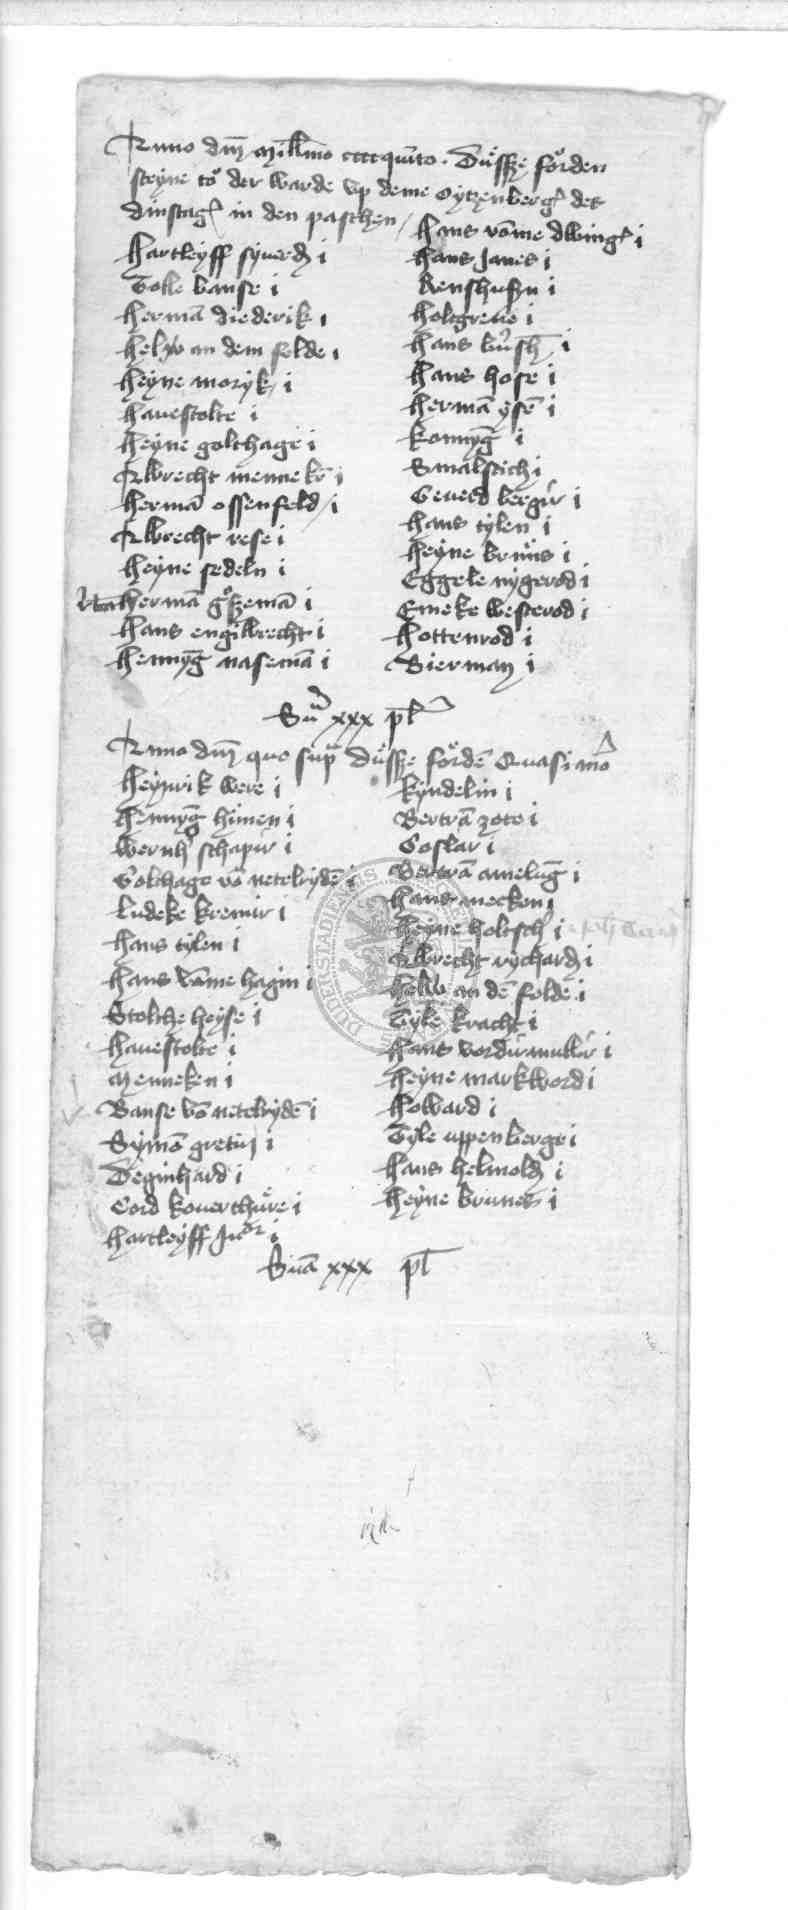 Anno dm̄ Millm̄o ccccquīto. Dusße forden
steyne to der warde up deme Oytzenberge des
dinstages in den paschen
hartleyff syuerd i
Tolle banse i
hermā diederik i
helw an dem felde i
heyne moryk i
hauestolte i
heyne golthage i
Albrecht mennekē i
hermā ossenfeld i
Albrecht rese i
heyne sedeln i
hermā goßemā i
hans engilbrecht i
hennyg̅ nasemā i
hans vōme dwinge i
hans Janes i
Renshußn i
holtgreue i
hans i
hans hose i
hermā ysē i
konnyg̅ i
Smalstich i
Geuerd berger i
hans tylen i
heyne bruns i
Eggele nygerod i
Emeke westerod i
hottenrod i
Bierman i
Sūa xxx pl
Anno dm̄ quo sup̄ dusße fordē Quasimō
heynrik were i
hennyg̅ himen i
wernh̄ schaper i
Golthage vō netelredē i
Ludeke kremer i
hans tylen i
hans vōme hagin i
Stoltze heyse i
hauestolte i
Menneken i
Banse vō netelredē i
Symō gretin i
Deginhard i
Cord kouerthure i
hartleyff Juor i
kyndelin i
Bertrā zote i
Goslar i
Bertrā amelug̅ i
hans mecken i
heyne holtsch i
Albrecht rychard i
helw an dē felde i
Tyle kracht i
hans vordermoller i
heyne markword i
howard i
Tyle uppenberge i
hans helmold i
heyne brunes i
Sūa xxx pl